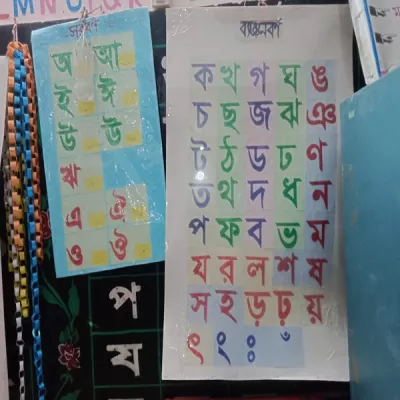 L M N O P Q R
স্বরবর্ণ
অ আ
ই ঈ
উ ঊ
ঋ
এ ঐ
ও ঔ
ব্যঞ্জনবর্ণ
ক খ গ ঘ ঙ
চ ছ জ ঝ ঞ
ট ঠ ড ঢ ণ
ত থ দ ধ ন
প ফ ব ভ ম
য র ল শ ষ
স হ ড় ঢ় য়
ৎ ং ঃ ঁ
প
ম